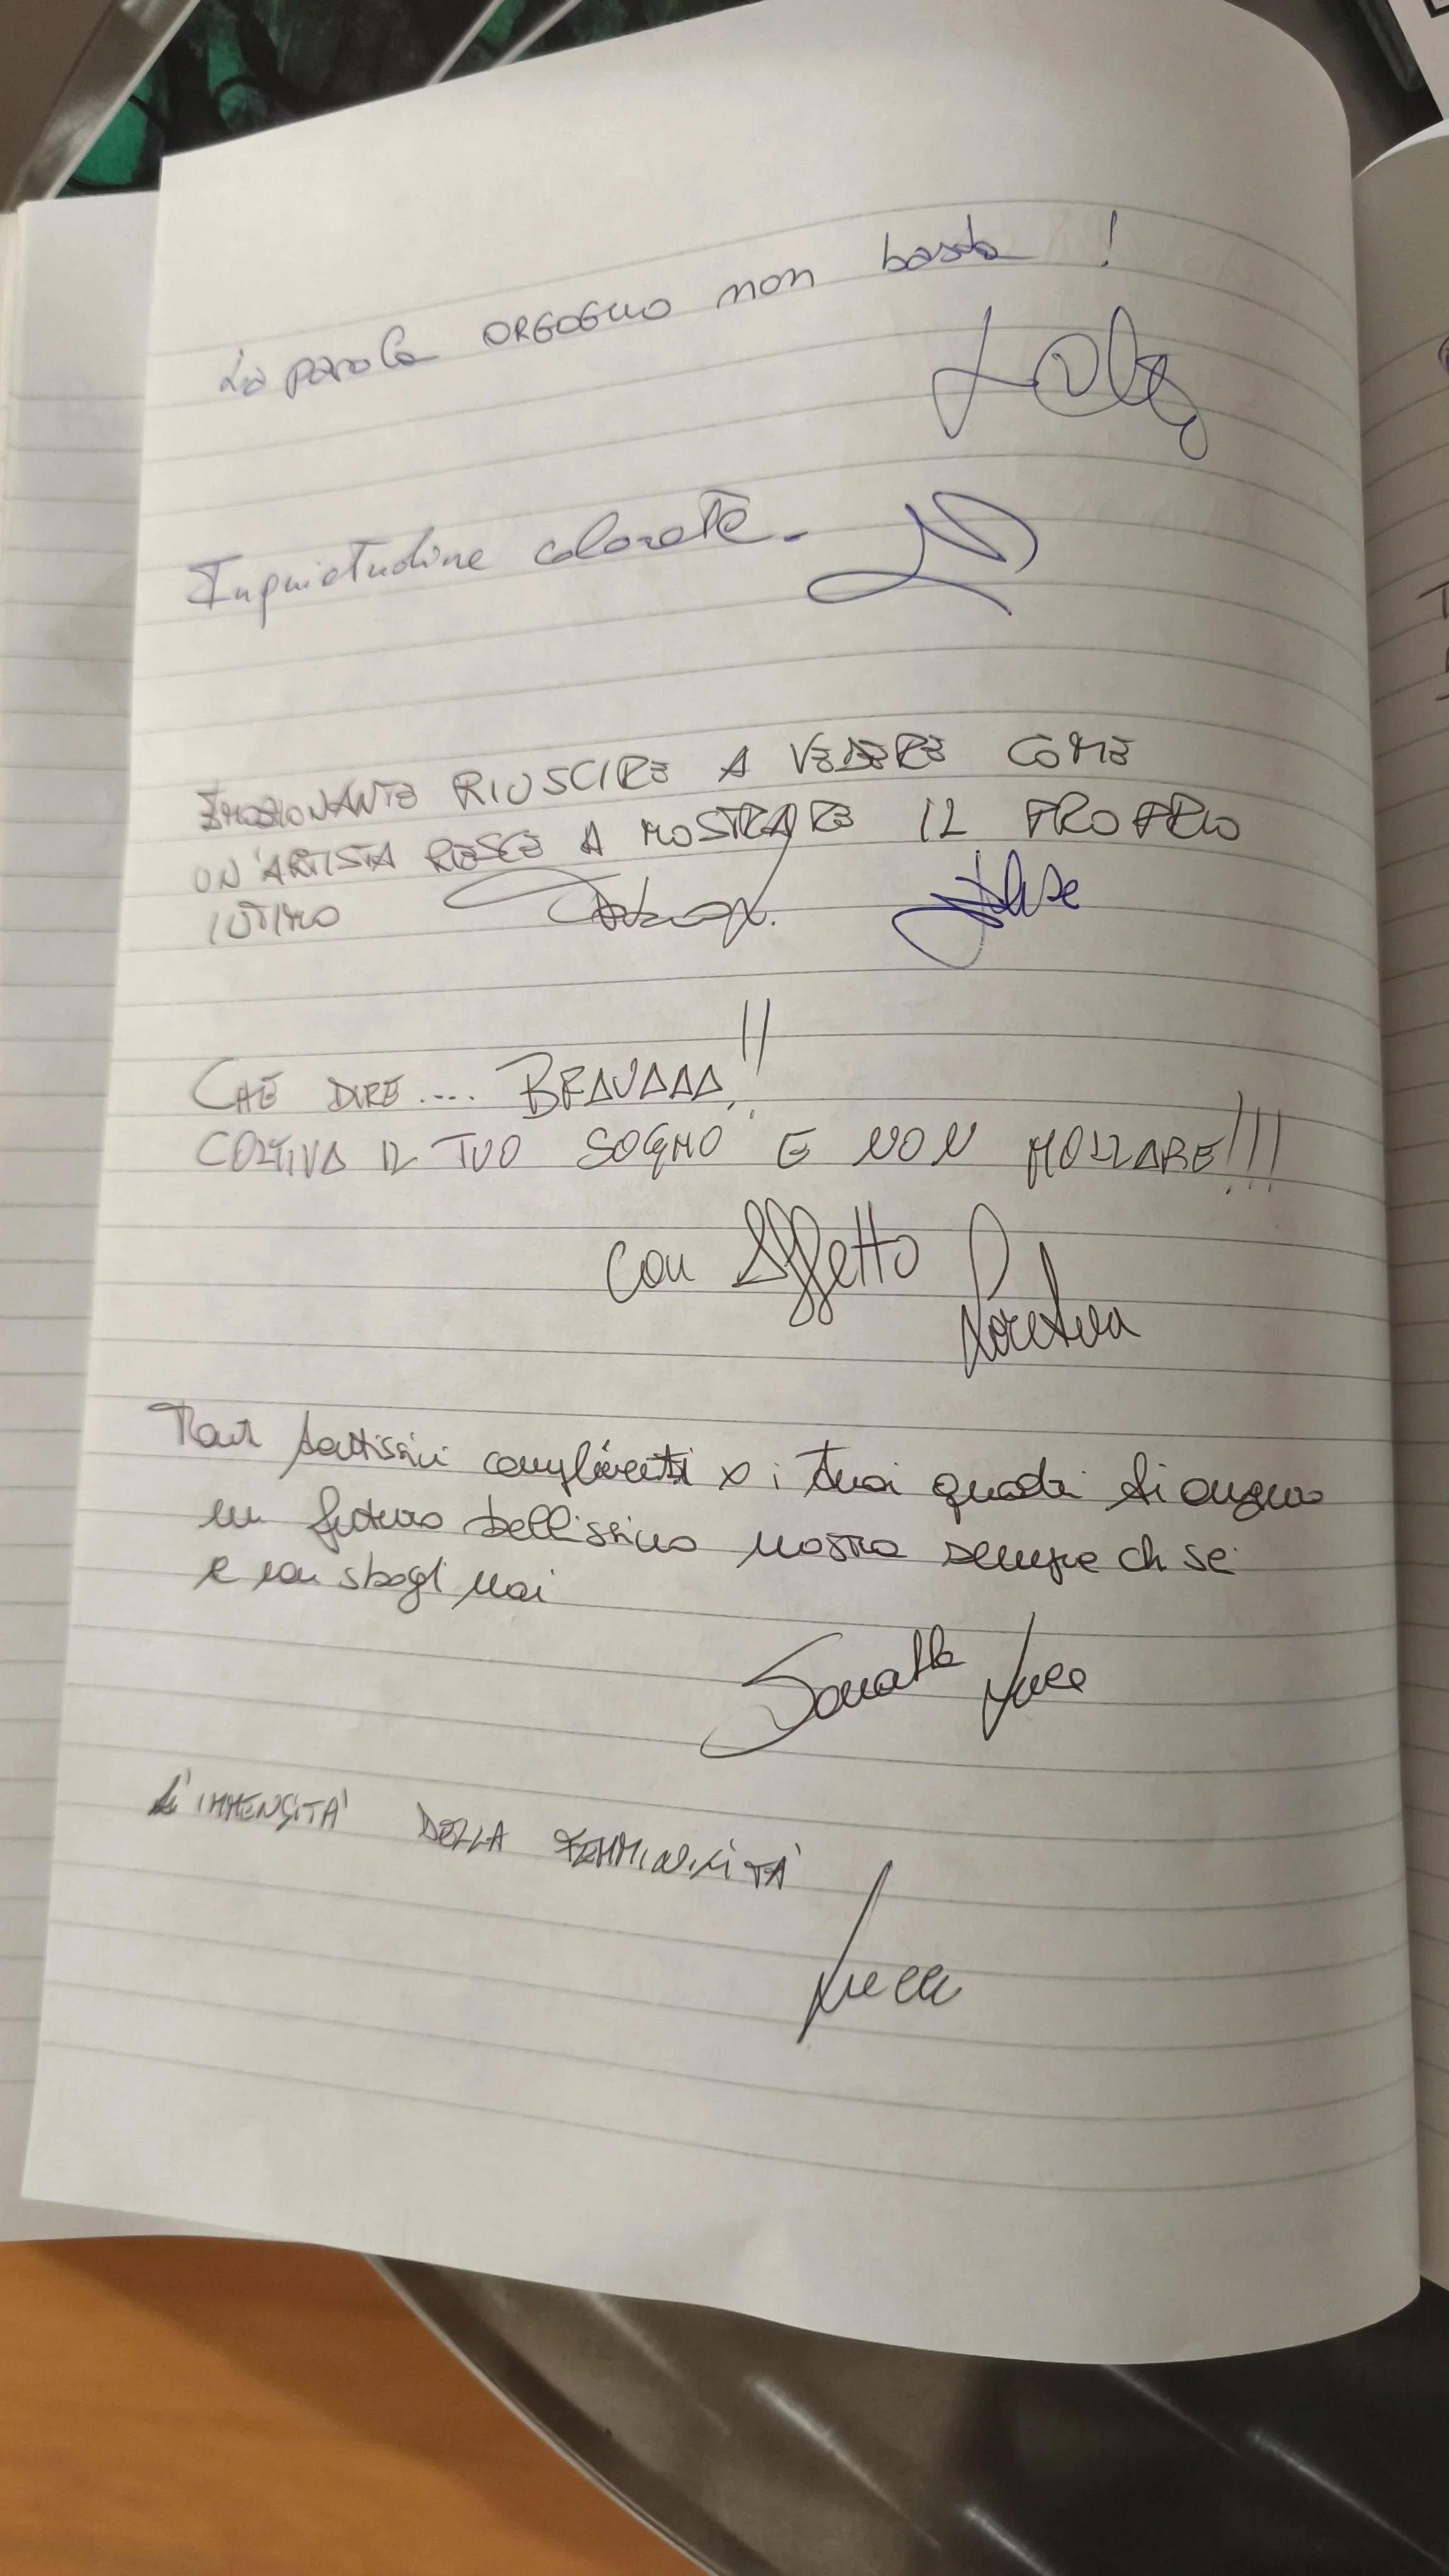 La parola ORGOGLIO non basta !
Lola
Inquietudine colorata.
EMOZIONANTE RIUSCIRE A VEDERE COME
UN'ARTISTA RIESCE A MOSTRARE IL PROPRIO
INTIMO
CHE DIRE.... BRAVAAA!!
COLTIVA IL TUO SOGNO E NON MOLLARE!!!
con Affetto
Loretta
Tanti tantissimi complimenti x i tuoi quadri ti auguro
un futuro bellissimo mostra sempre chi sei
e non sbagli mai
Donatella
L'IMMENSITA' DELLA FEMMINILITA'
Luca